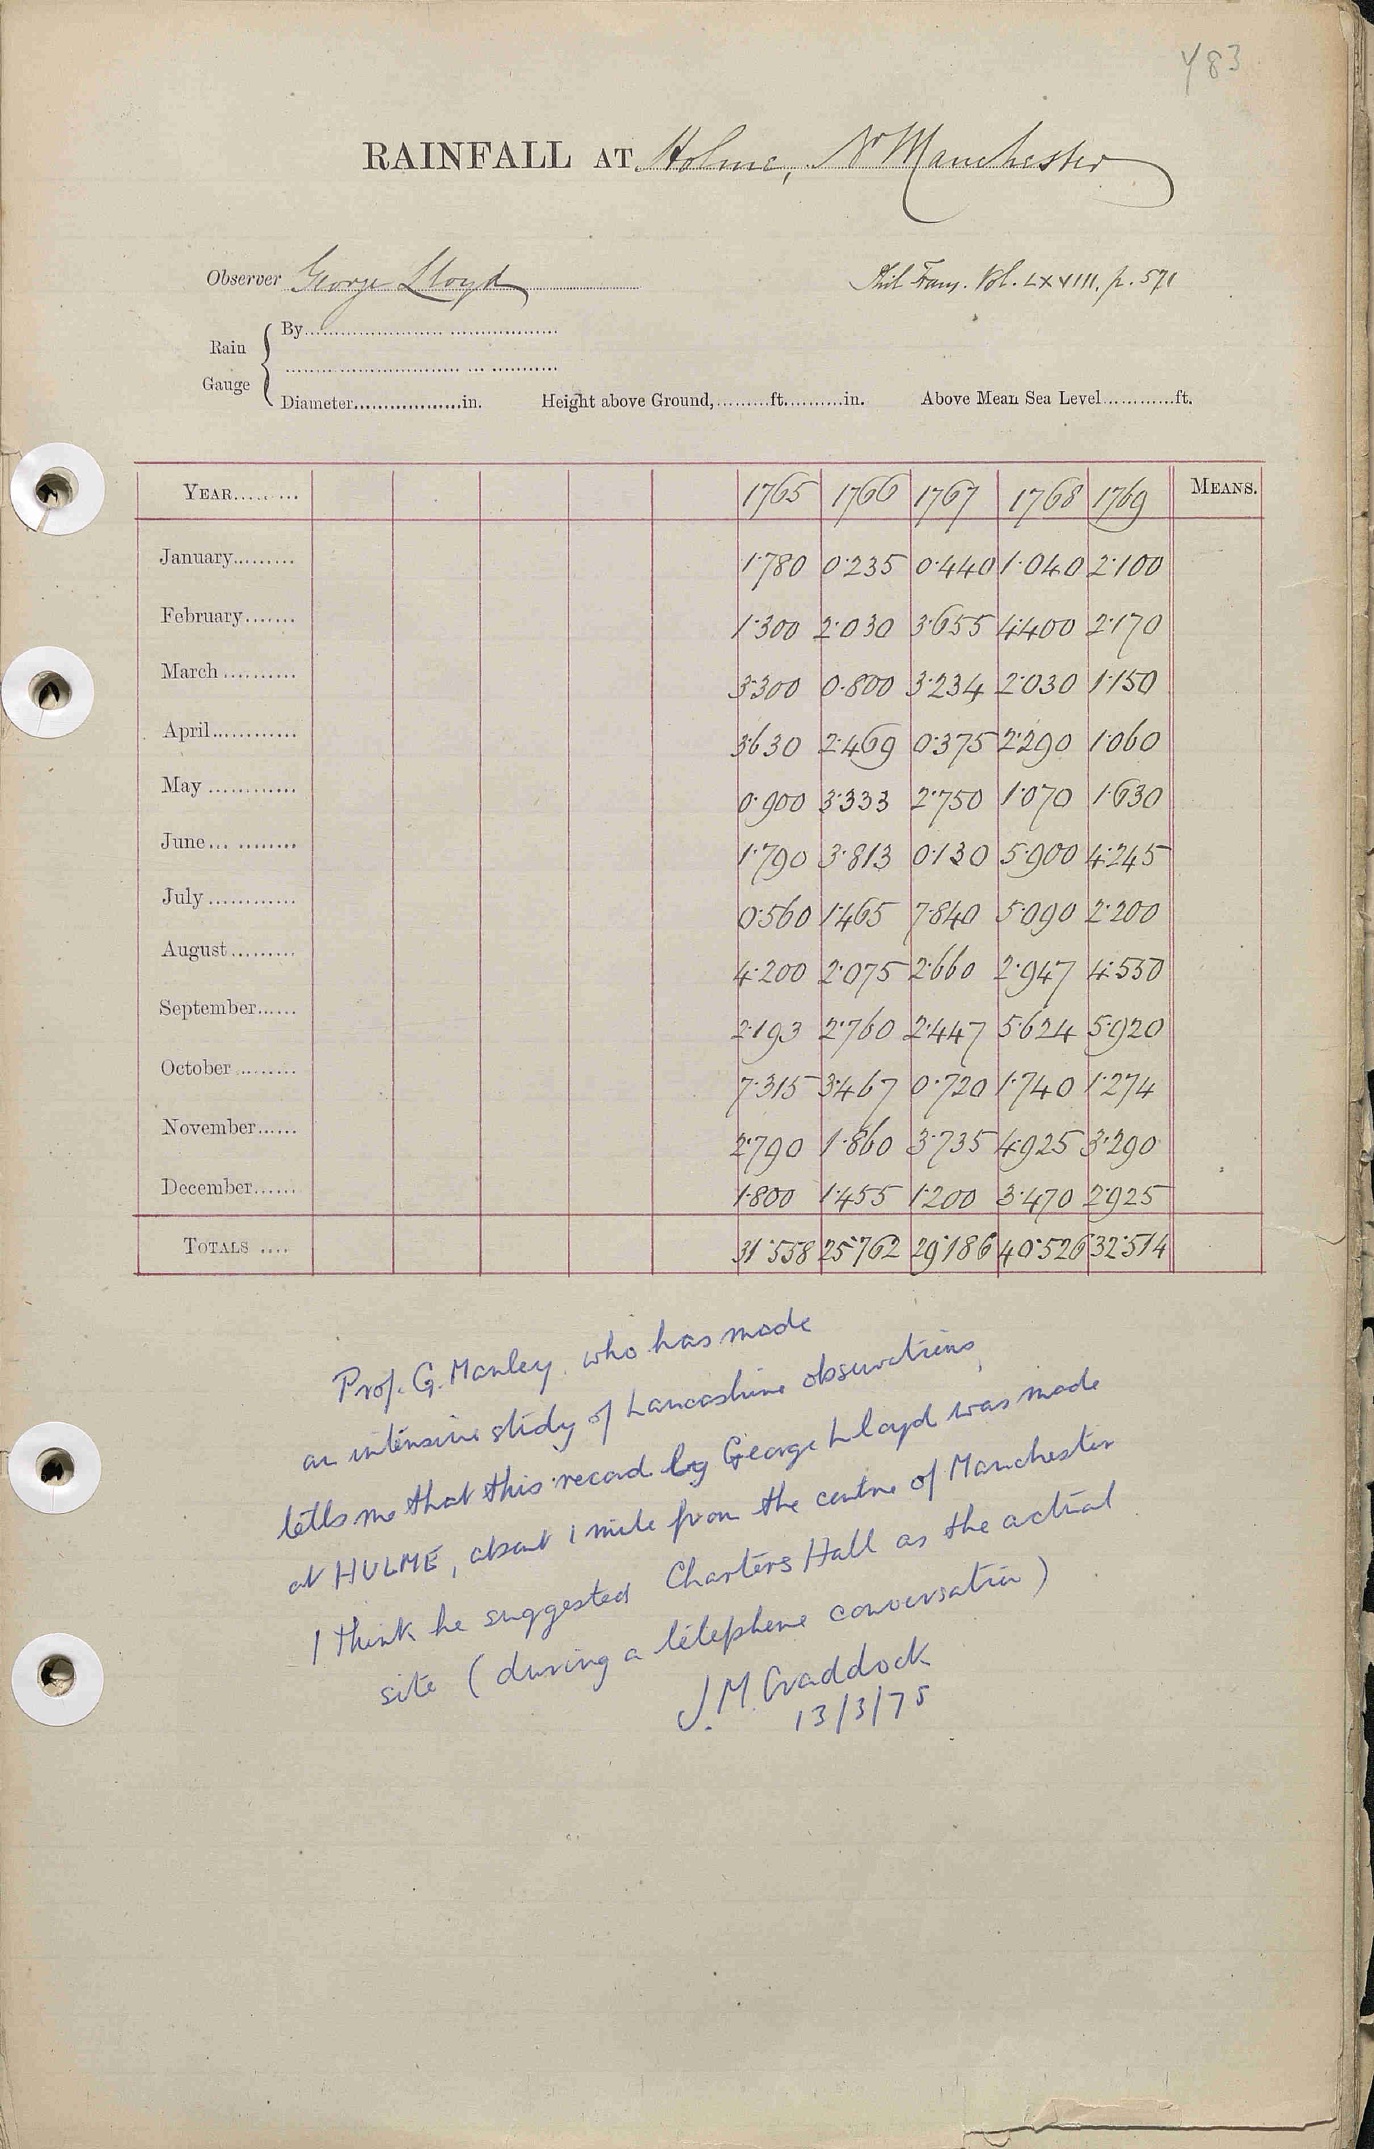 Y83
RAINFALL AT Holme, Nr Manchester
Observer George Lloyd Phil Trans. Vol. LXVIII. p. 571
Rain Gauge { By
Diameter in. Height above Ground, ft. in. Above Mean Sea Level ft.
YEAR 1765 1766 1767 1768 1769 MEANS.
January 1.780 0.235 0.440 1.040 2.100
February 1.300 2.030 3.655 4.400 2.170
March 3.300 0.800 3.234 2.030 1.150
April 3.630 2.469 0.375 2.290 1.060
May 0.900 3.333 2.750 1.070 1.630
June 1.790 3.813 0.130 5.900 4.245
July 0.560 1.465 7.840 5.090 2.200
August 4.200 2.075 2.660 2.947 4.550
September 2.193 2.760 2.447 5.624 5.920
October 7.315 3.467 0.720 1.740 1.274
November 2.790 1.860 3.735 4.925 3.290
December 1.800 1.455 1.200 3.470 2.925
TOTALS 31.558 25.762 29.186 40.526 32.514
Prof. G. Manley, who has made
an intensive study of Lancashire observations,
tells me that this record by George Lloyd was made
at HULME, about 1 mile from the centre of Manchester
I think he suggested Charters Hall as the actual
site (during a telephone conversation)
J.M. Craddock
13/3/75